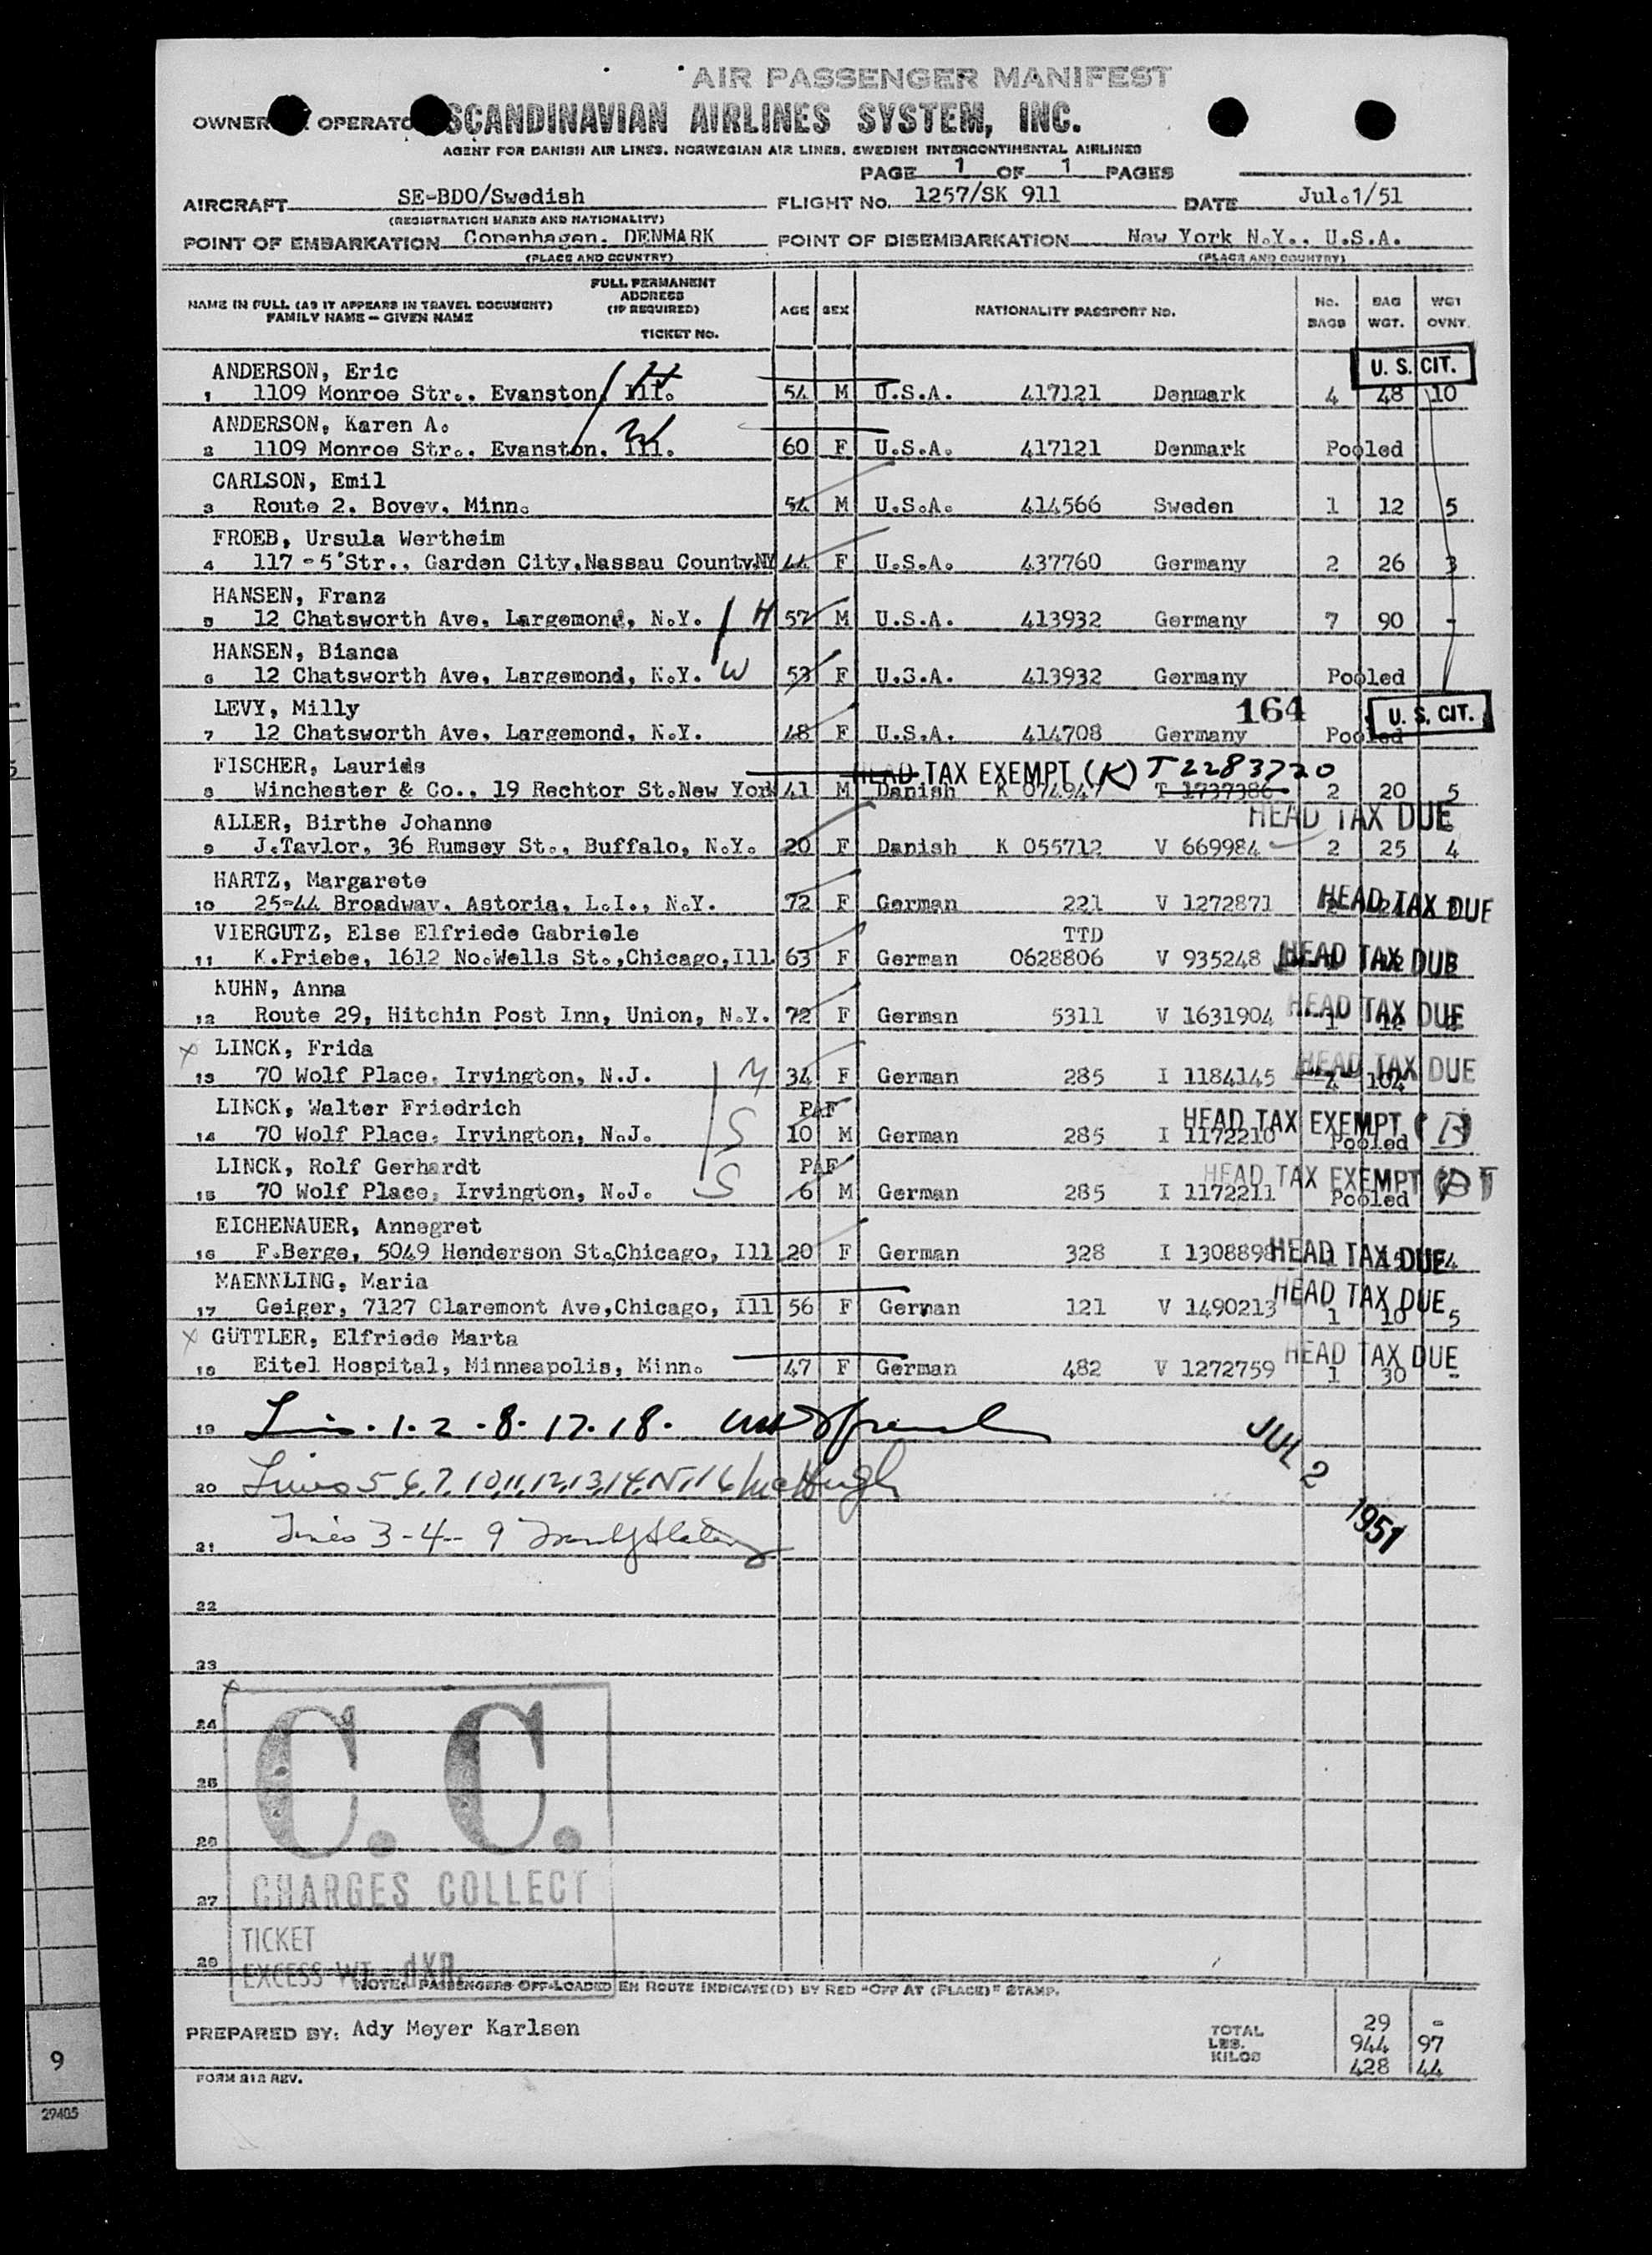 AIR PASSENGER MANIFEST
OWNER OPERATO SCANDINAVIAN AIRLINES SYSTEM, INC.
AGENT FOR DANISH AIR LINES, NORWEGIAN AIR LINES, SWEDISH INTERCONTINENTAL AIRLINES
PAGE 1 OF 1 PAGES
AIRCRAFT SE-BDO/Swedish FLIGHT NO. 1257/SK 911 DATE Jul.1/51
(REGISTRATION MARKS AND NATIONALITY)
POINT OF EMBARKATION Copenhagen. DENMARK POINT OF DISEMBARKATION New York N.Y., U.S.A.
(PLACE AND COUNTRY) (PLACE AND COUNTRY)
FULL PERMANENT
ADDRESS
NAME IN FULL (AS IT APPEARS IN TRAVEL DOCUMENT) (IF REQUIRED) AGE SEX NATIONALITY PASSPORT NO. NO. BAG WGT
FAMILY NAME - GIVEN NAME BAGS WGT. OVNT.
TICKET NO.
ANDERSON, Eric H U. S. CIT.
1 1109 Monroe Str., Evanston, Ill. 54 M U.S.A. 417121 Denmark 4 48 10
ANDERSON, Karen A. W
2 1109 Monroe Str., Evanston, Ill. 60 F U.S.A. 417121 Denmark Pooled
CARLSON, Emil
3 Route 2, Bovey, Minn. 54 M U.S.A. 414566 Sweden 1 12 5
FROEB, Ursula Wertheim
4 117 - 5 Str., Garden City,Nassau County.NY 44 F U.S.A. 437760 Germany 2 26 3
HANSEN, Franz
5 12 Chatsworth Ave, Largemond, N.Y. H 57 M U.S.A. 413932 Germany 7 90 -
HANSEN, Bianca
6 12 Chatsworth Ave, Largemond, N.Y. W 53 F U.S.A. 413932 Germany Pooled
LEVY, Milly 164 U. S. CIT.
7 12 Chatsworth Ave, Largemond, N.Y. 48 F U.S.A. 414708 Germany Pooled
FISCHER, Laurids HEAD TAX EXEMPT (K) T2283720
8 Winchester & Co., 19 Rechtor St.New York 41 M Danish K 074947 T 1737386 2 20 5
ALLER, Birthe Johanne HEAD TAX DUE
9 J.Taylor, 36 Rumsey St., Buffalo, N.Y. 20 F Danish K 055712 V 669984 2 25 4
HARTZ, Margarete
10 25-44 Broadway, Astoria, L.I., N.Y. 72 F German 221 V 1272871 HEAD TAX DUE
VIERGUTZ, Else Elfriede Gabriele TTD
11 K.Priebe, 1612 No.Wells St.,Chicago,Ill. 63 F German 0628806 V 935248 HEAD TAX DUE
KUHN, Anna
12 Route 29, Hitchin Post Inn, Union, N.Y. 72 F German 5311 V 1631904 HEAD TAX DUE
x LINCK, Frida
13 70 Wolf Place, Irvington, N.J. M 34 F German 285 I 1184145 HEAD TAX DUE 4 104
LINCK, Walter Friedrich PAF HEAD TAX EXEMPT
14 70 Wolf Place, Irvington, N.J. S 10 M German 285 I 1172210 Pooled
LINCK, Rolf Gerhardt PAF HEAD TAX EXEMPT
15 70 Wolf Place, Irvington, N.J. S 6 M German 285 I 1172211 Pooled
EICHENAUER, Annegret
16 F.Berge, 5049 Henderson St.Chicago, Ill 20 F German 328 I 1308898 HEAD TAX DUE 4
MAENNLING, Maria HEAD TAX DUE
17 Geiger, 7127 Claremont Ave,Chicago, Ill 56 F German 121 V 1490213 1 10 5
x GÜTTLER, Elfriede Marta HEAD TAX DUE
18 Eitel Hospital, Minneapolis, Minn. 47 F German 482 V 1272759 1 30 -
19 1. 2. 8. 17. 18.
JUL 2 1951
20 Lines 5, 6, 7, 10, 11, 12, 13, 14, 15, 16 McHugh
21 Lines 3-4-9
22
23
24
25
26
27
28
C. C.
CHARGES COLLECT
TICKET
EXCESS WT dKR.
NOTE: PASSENGERS OFF-LOADED EN ROUTE INDICATE(D) BY RED "OFF AT (PLACE)" STAMP.
PREPARED BY: Ady Meyer Karlsen
TOTAL 29 -
LBS. 944 97
KILOS 428 44
FORM 212 REV.
9
29405